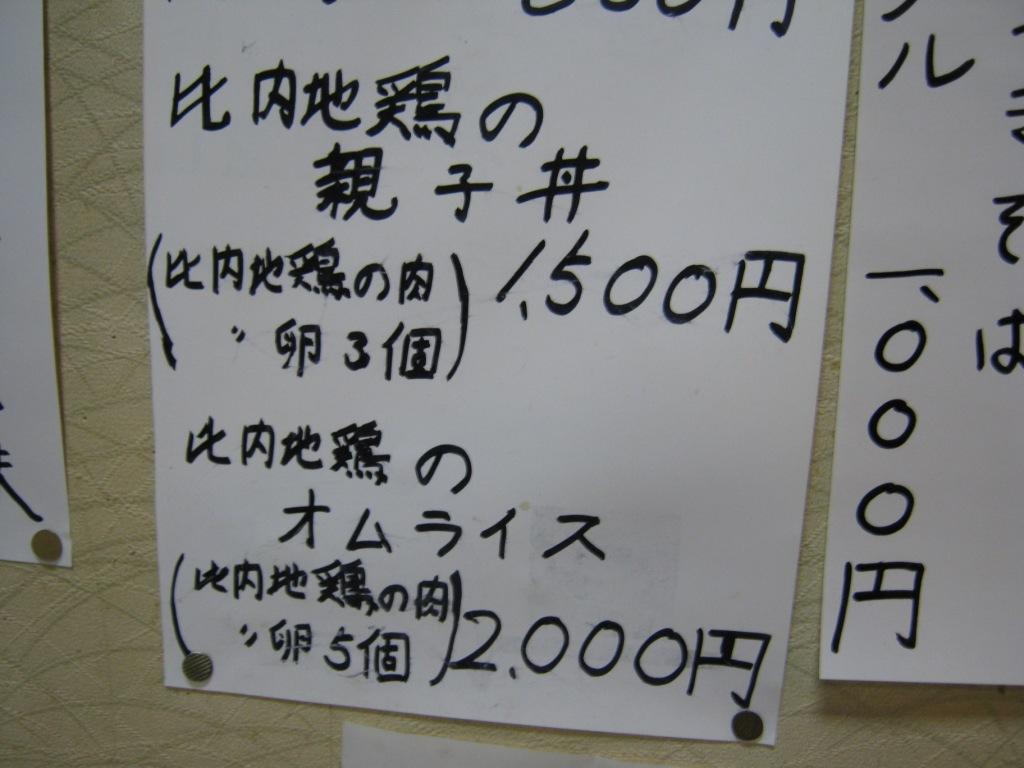 比内地鶏の
親子丼
(比内地鶏の肉
〃卵3個) 1,500円
比内地鶏の
オムライス
(比内地鶏の肉
〃卵5個) 2,000円
そば
ル 一、000円